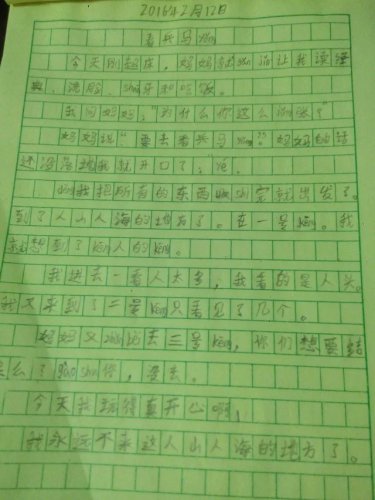 2016年2月12日
看兵马yǒng
今天刚起床，妈妈就 让我读
脸、 牙和吃饭。
我问妈妈："为什么你这么 张？"
妈妈说："要去看兵马yǒng。"妈妈的话
还没落地我就开口了：
我把所有的东西 完就出发了。
到了人山人海的地方了。在一号kēng。我
就想到了kēng人的kēng。
我进去一看人太多，我看的是人头。
我又来到了二号kēng只看见了几个。
妈妈又 去三号kēng，你们想要结
果么？ ，没去。
今天我玩得真开心啊，
我永远不来这人山人海的地方了。